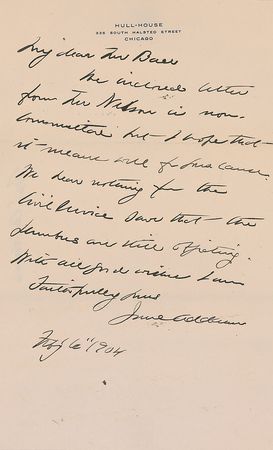 HULL-HOUSE
335 SOUTH HALSTED STREET
CHICAGO
My dear Mr
The inclosed letter
from Mr Wilson is non-
committal but I hope that
it means well
We hear nothing from the
Civil Service save that the
are still
With all good wishes I am
Faithfully yours
Jane Addams
1904